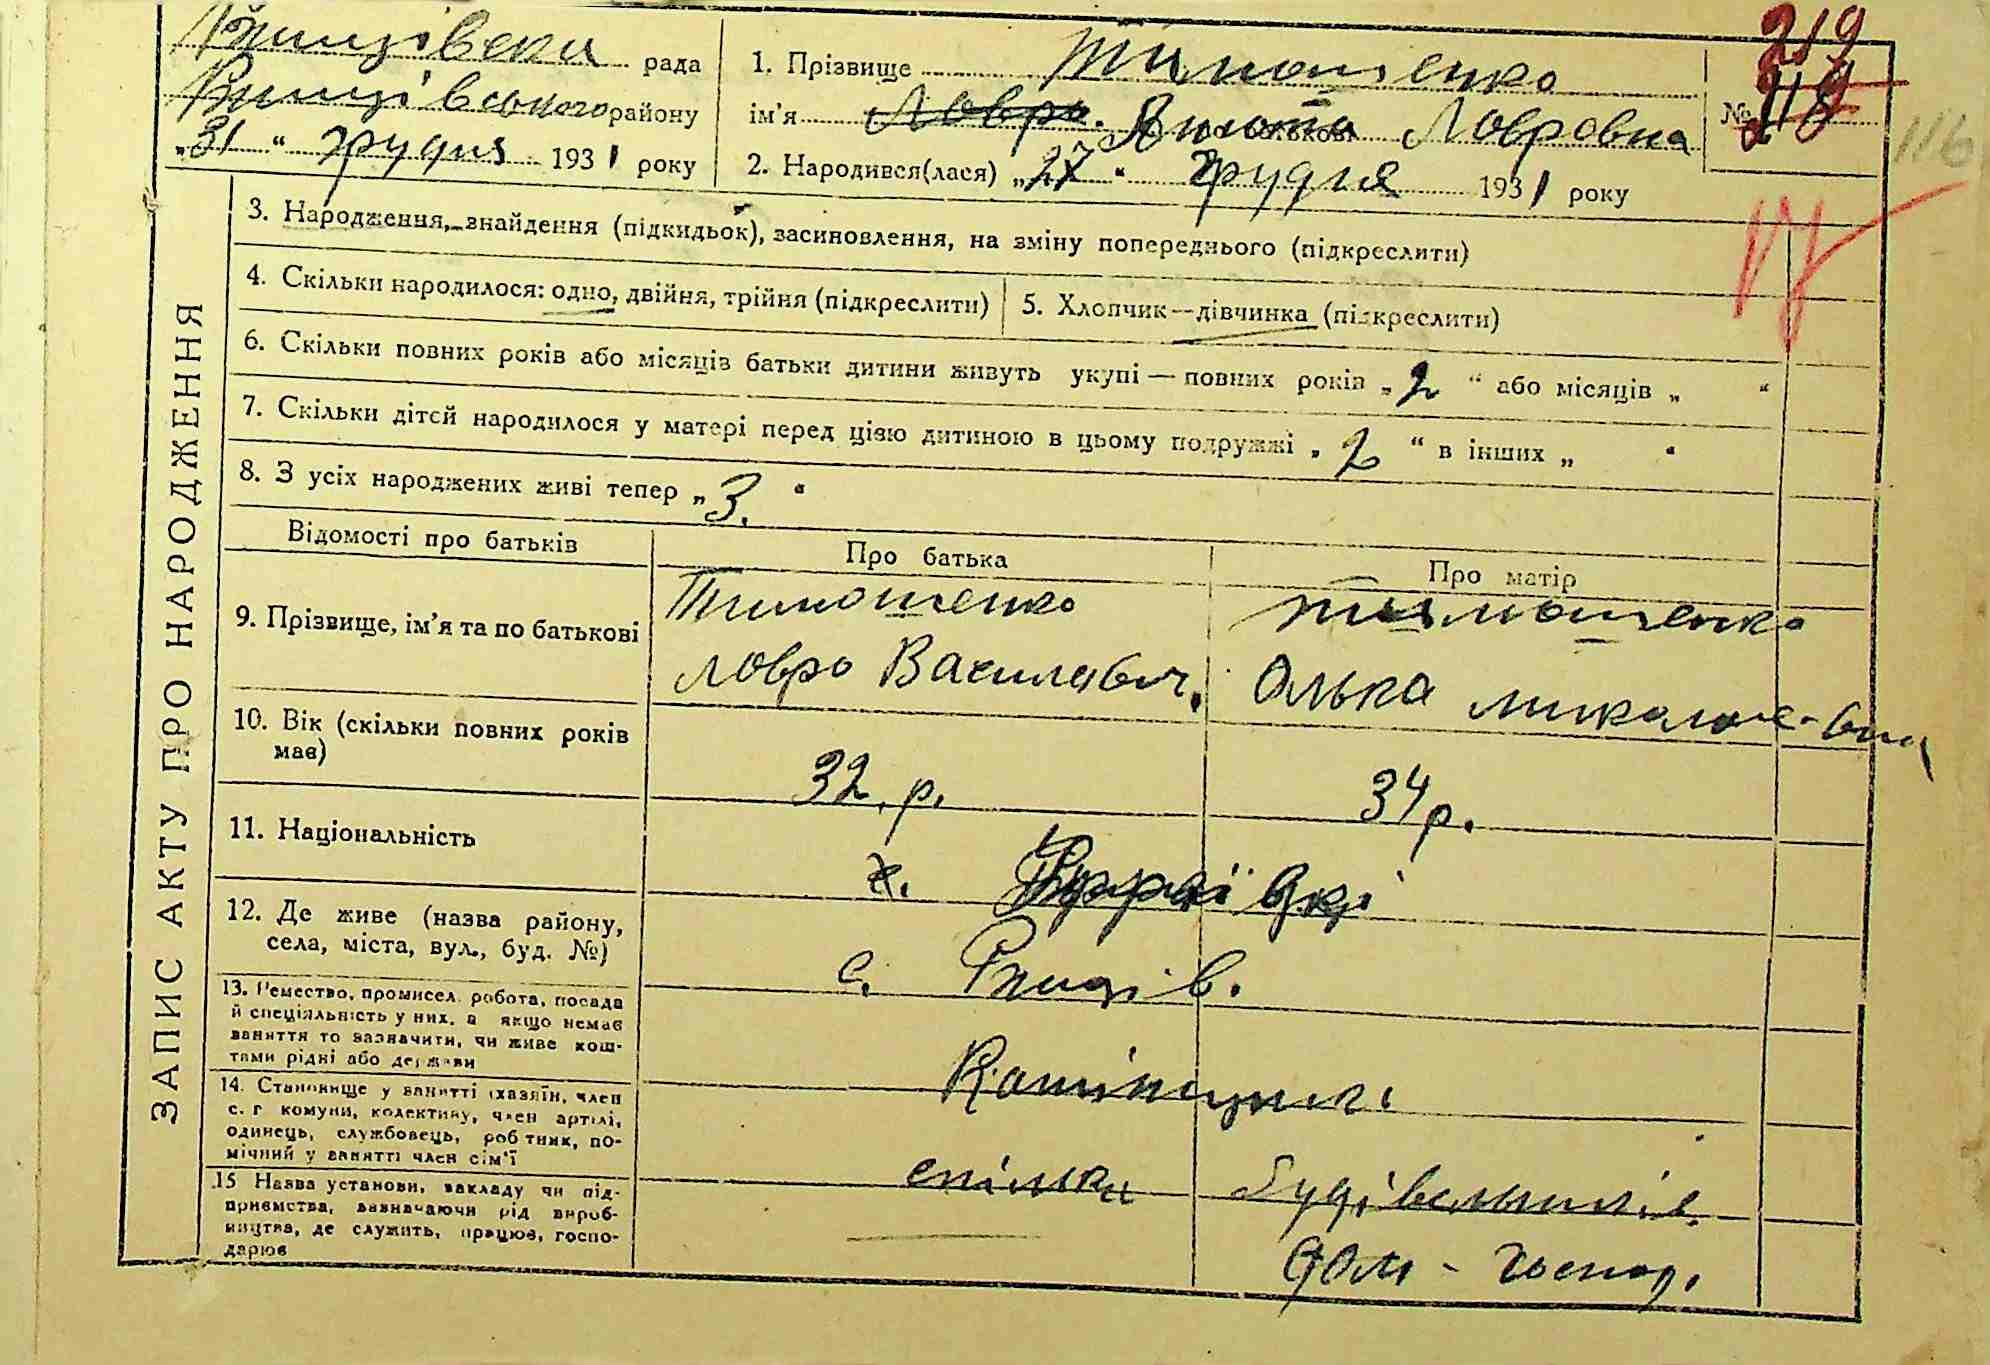 Ріпківська рада
Ріпківського району
„31“ грудня 1931 року
1. Прізвище Тимошенко
ім'я Лавро. Анюта по батькові Лавровна
№ 219
116
2. Народився(лася) „27“ грудня 1931 року
ЗАПИС АКТУ ПРО НАРОДЖЕННЯ
3. Народження, знайдення (підкидьок), засиновлення, на зміну попереднього (підкреслити)
4. Скільки народилося: одно, двійня, трійня (підкреслити)
5. Хлопчик—дівчинка (підкреслити)
6. Скільки повних років або місяців батьки дитини живуть укупі — повних років „2“ або місяців „ “
7. Скільки дітей народилося у матері перед цією дитиною в цьому подружжі „2“ в інших „ “
8. З усіх народжених живі тепер „3.“
Відомості про батьків
Про батька
Про матір
9. Прізвище, ім'я та по батькові
Тимошенко
Ловро Василевич.
Тимошенко
Олька Миколаевна
10. Вік (скільки повних років
має)
32. р.
34 р.
11. Національність
12. Де живе (назва району,
села, міста, вул., буд. №)
с.
13. Ремество, промисел, робота, посада
й спеціяльність у них, а якщо немає
заняття то зазначити, чи живе кош-
тами рідні або держави
14. Становище у занятті (хазяїн, член
с. г. комуни, колективу, член артілі,
одинець, службовець, робітник, по-
мічний у занятті член сім'ї
спілки будівельників.
15 Назва установи, закладу чи під-
приємства, зазначаючи рід вироб-
ництва, де служить, працює, госпо-
дарює
Дом - господ.